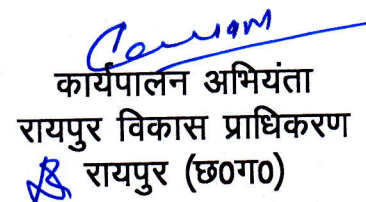 कार्यपालन अभियंता
रायपुर विकास प्राधिकरण
रायपुर (छ0ग0)